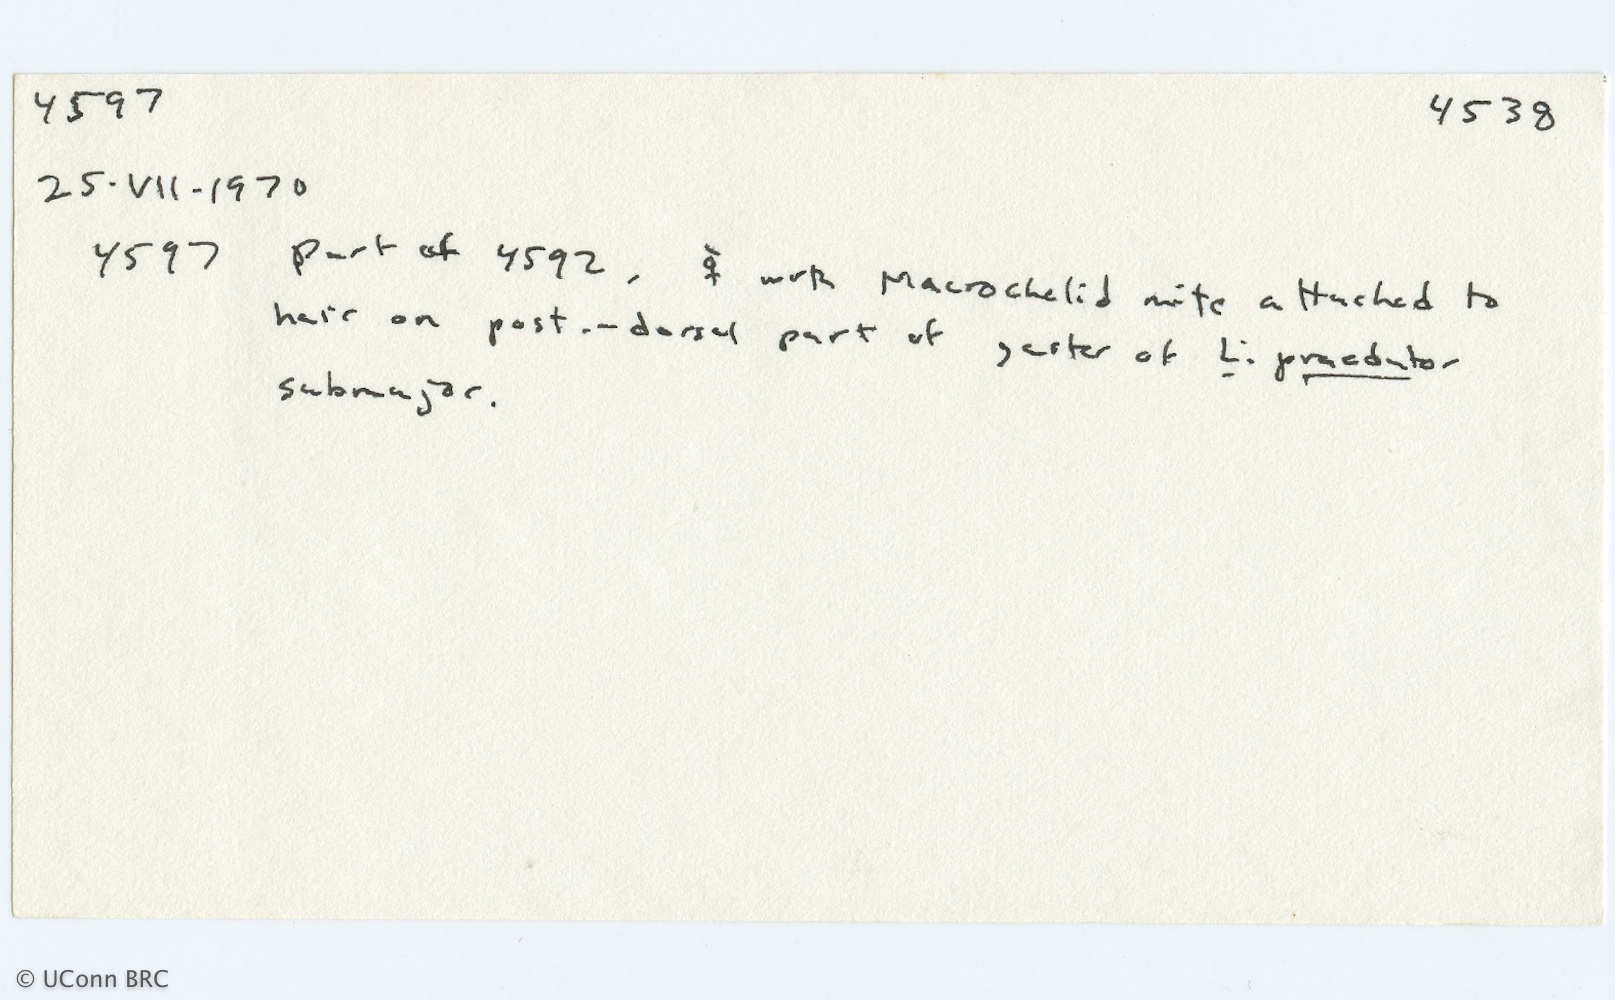 4597 4538
25-VII-1970
4597 Part of 4592, ☿ with Macrochelid mite attached to
hair on post.-dorsal part of gaster of L. praedator
submajor.
© UConn BRC